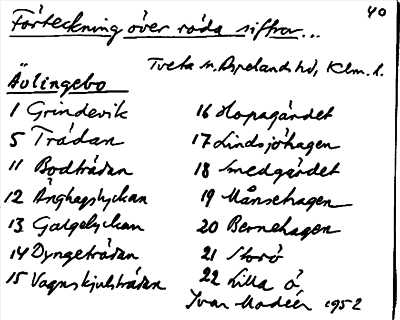 40
Förteckning över röda siffror...
Tveta s:n, Aspelands hd, Klm. l.
Äulingebo
1 Grindevik
5 Trädan
11 Bodträdan
12 Änghagslyckan
13 Galgelyckan
14 Dyngeträdan
15 Vagnskjulsträdan
16 Hopagärdet
17 Lindsjöhagen
18 Smedgärdet
19 Månsehagen
20 Bernehagen
21 Storö
22 Lilla ö
Ivar Modéer 1952